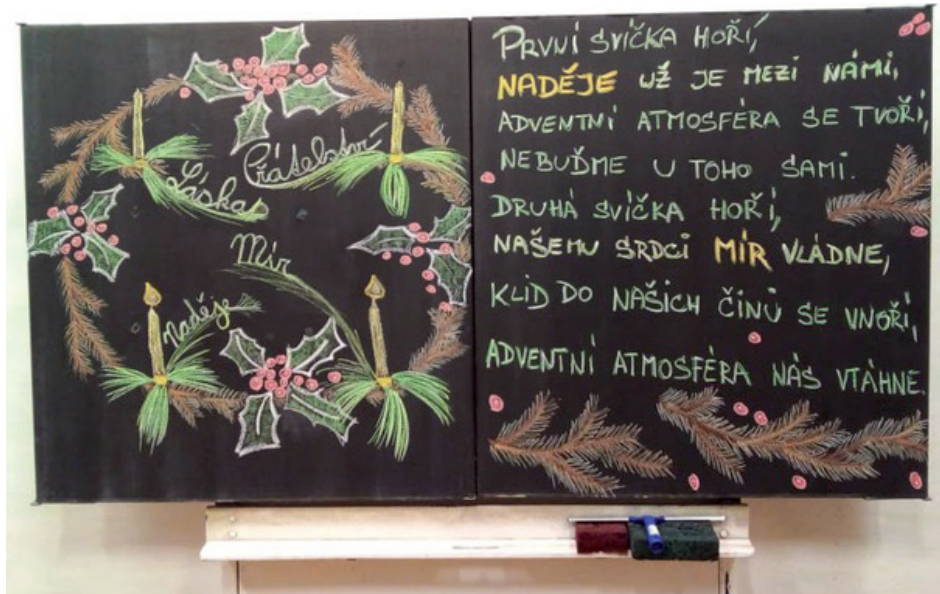 Láska
Přátelství
Mír
Naděje
PRVNÍ SVÍČKA HOŘÍ,
NADĚJE UŽ JE MEZI NÁMI,
ADVENTNÍ ATMOSFÉRA SE TVOŘÍ,
NEBUĎME U TOHO SAMI.
DRUHÁ SVÍČKA HOŘÍ,
NAŠEMU SRDCI MÍR VLÁDNE,
KLID DO NAŠICH ČINŮ SE VNOŘÍ,
ADVENTNÍ ATMOSFÉRA NÁS VTÁHNE.